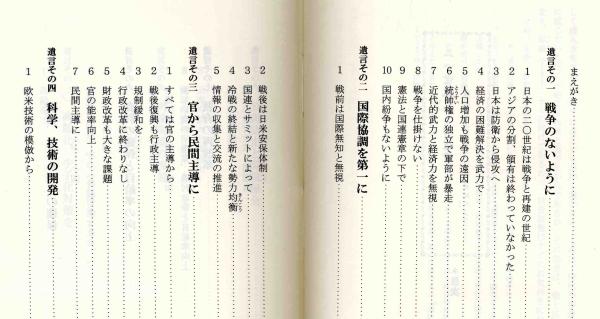 まえがき
遺言その一 戦争のないように
1 日本の二〇世紀は戦争と再建の世紀
2 アジアの分割、領有は終わっていなかった
3 日本は防衛から侵攻へ
4 経済の困難解決を武力で
5 人口増加も戦争の遠因
6 統帥権の独立で軍部が暴走
7 近代的武力と経済力を無視
8 戦争を仕掛けない
9 憲法と国連憲章の下で
10 国内紛争もないように
遺言その二 国際協調を第一に
1 戦前は国際無知と無視
2 戦後は日米安保体制
3 国連とサミットによって
4 冷戦の終結と新たな勢力均衡
5 情報の収集と交流の推進
遺言その三 官から民間主導に
1 すべては官の主導から
2 戦後復興も行政主導
3 規制緩和を
4 行政改革に終わりなし
5 財政改革も大きな課題
6 官の能率向上
7 民間主導に
遺言その四 科学、技術の開発
1 欧米技術の模倣から